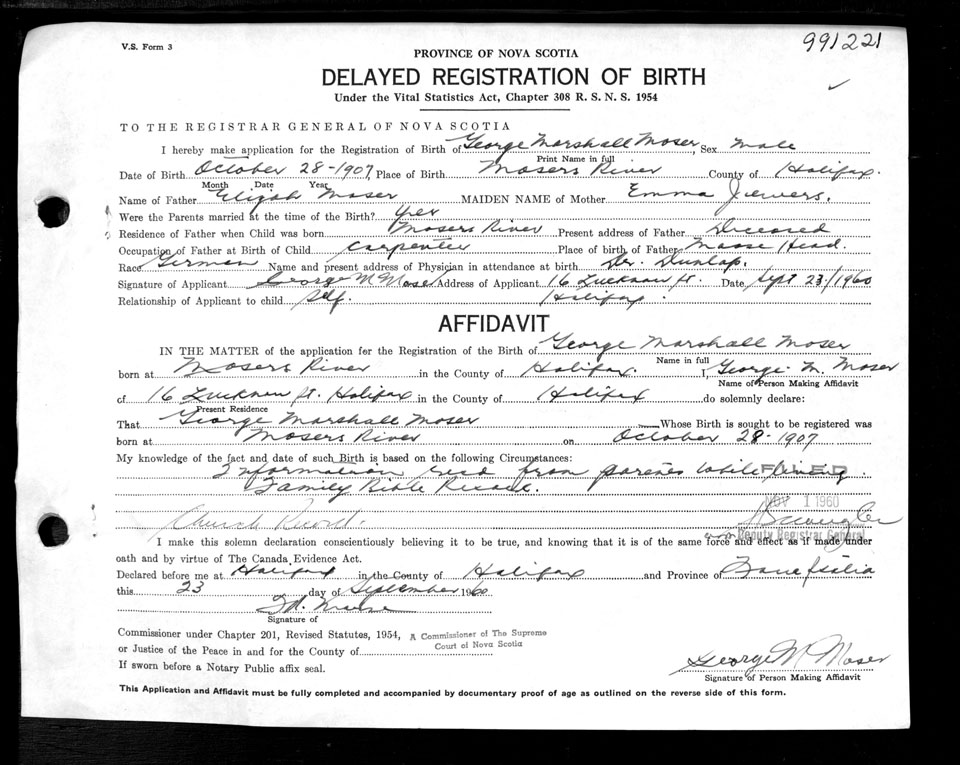 V.S. Form 3
991221
PROVINCE OF NOVA SCOTIA
DELAYED REGISTRATION OF BIRTH
Under the Vital Statistics Act, Chapter 308 R. S. N. S. 1954
TO THE REGISTRAR GENERAL OF NOVA SCOTIA
I hereby make application for the Registration of Birth of George Marshall Moser, Sex male
Print Name in full
Date of Birth October 28-1907, Place of Birth Mosers River County of Halifax.
Month Date Year
Name of Father Elijah Moser MAIDEN NAME of Mother Emma Jewers,
Were the Parents married at the time of the Birth? yes
Residence of Father when Child was born Mosers River Present address of Father Deceased
Occupation of Father at Birth of Child Carpenter Place of birth of Father Moose Head.
Race German Name and present address of Physician in attendance at birth Dr. Dunlap.
Signature of Applicant George M Moser Address of Applicant 16 Lucknow St. Date Sept 23/1960
Relationship of Applicant to child Self. Halifax
AFFIDAVIT
IN THE MATTER of the application for the Registration of the Birth of George Marshall Moser
Name in full
born at Mosers River in the County of Halifax. I, George M. Moser
Name of Person Making Affidavit
of 16 Lucknow St. Halifax in the County of Halifax do solemnly declare:
Present Residence
That George Marshall Moser Whose Birth is sought to be registered was
born at Mosers River on October 28-1907
My knowledge of the fact and date of such Birth is based on the following Circumstances:
Information recd from parents while living.
FILED
Family Bible Record.
NOV 1 1960
Church Record.
Deputy Registrar General
I make this solemn declaration conscientiously believing it to be true, and knowing that it is of the same force and effect as if made under
oath and by virtue of The Canada Evidence Act.
Declared before me at Halifax in the County of Halifax and Province of Nova Scotia
this 23 day of September 1960
Signature of
Commissioner under Chapter 201, Revised Statutes, 1954, A Commissioner of The Supreme
Court of Nova Scotia
or Justice of the Peace in and for the County of
If sworn before a Notary Public affix seal.
George M Moser
Signature of Person Making Affidavit
This Application and Affidavit must be fully completed and accompanied by documentary proof of age as outlined on the reverse side of this form.